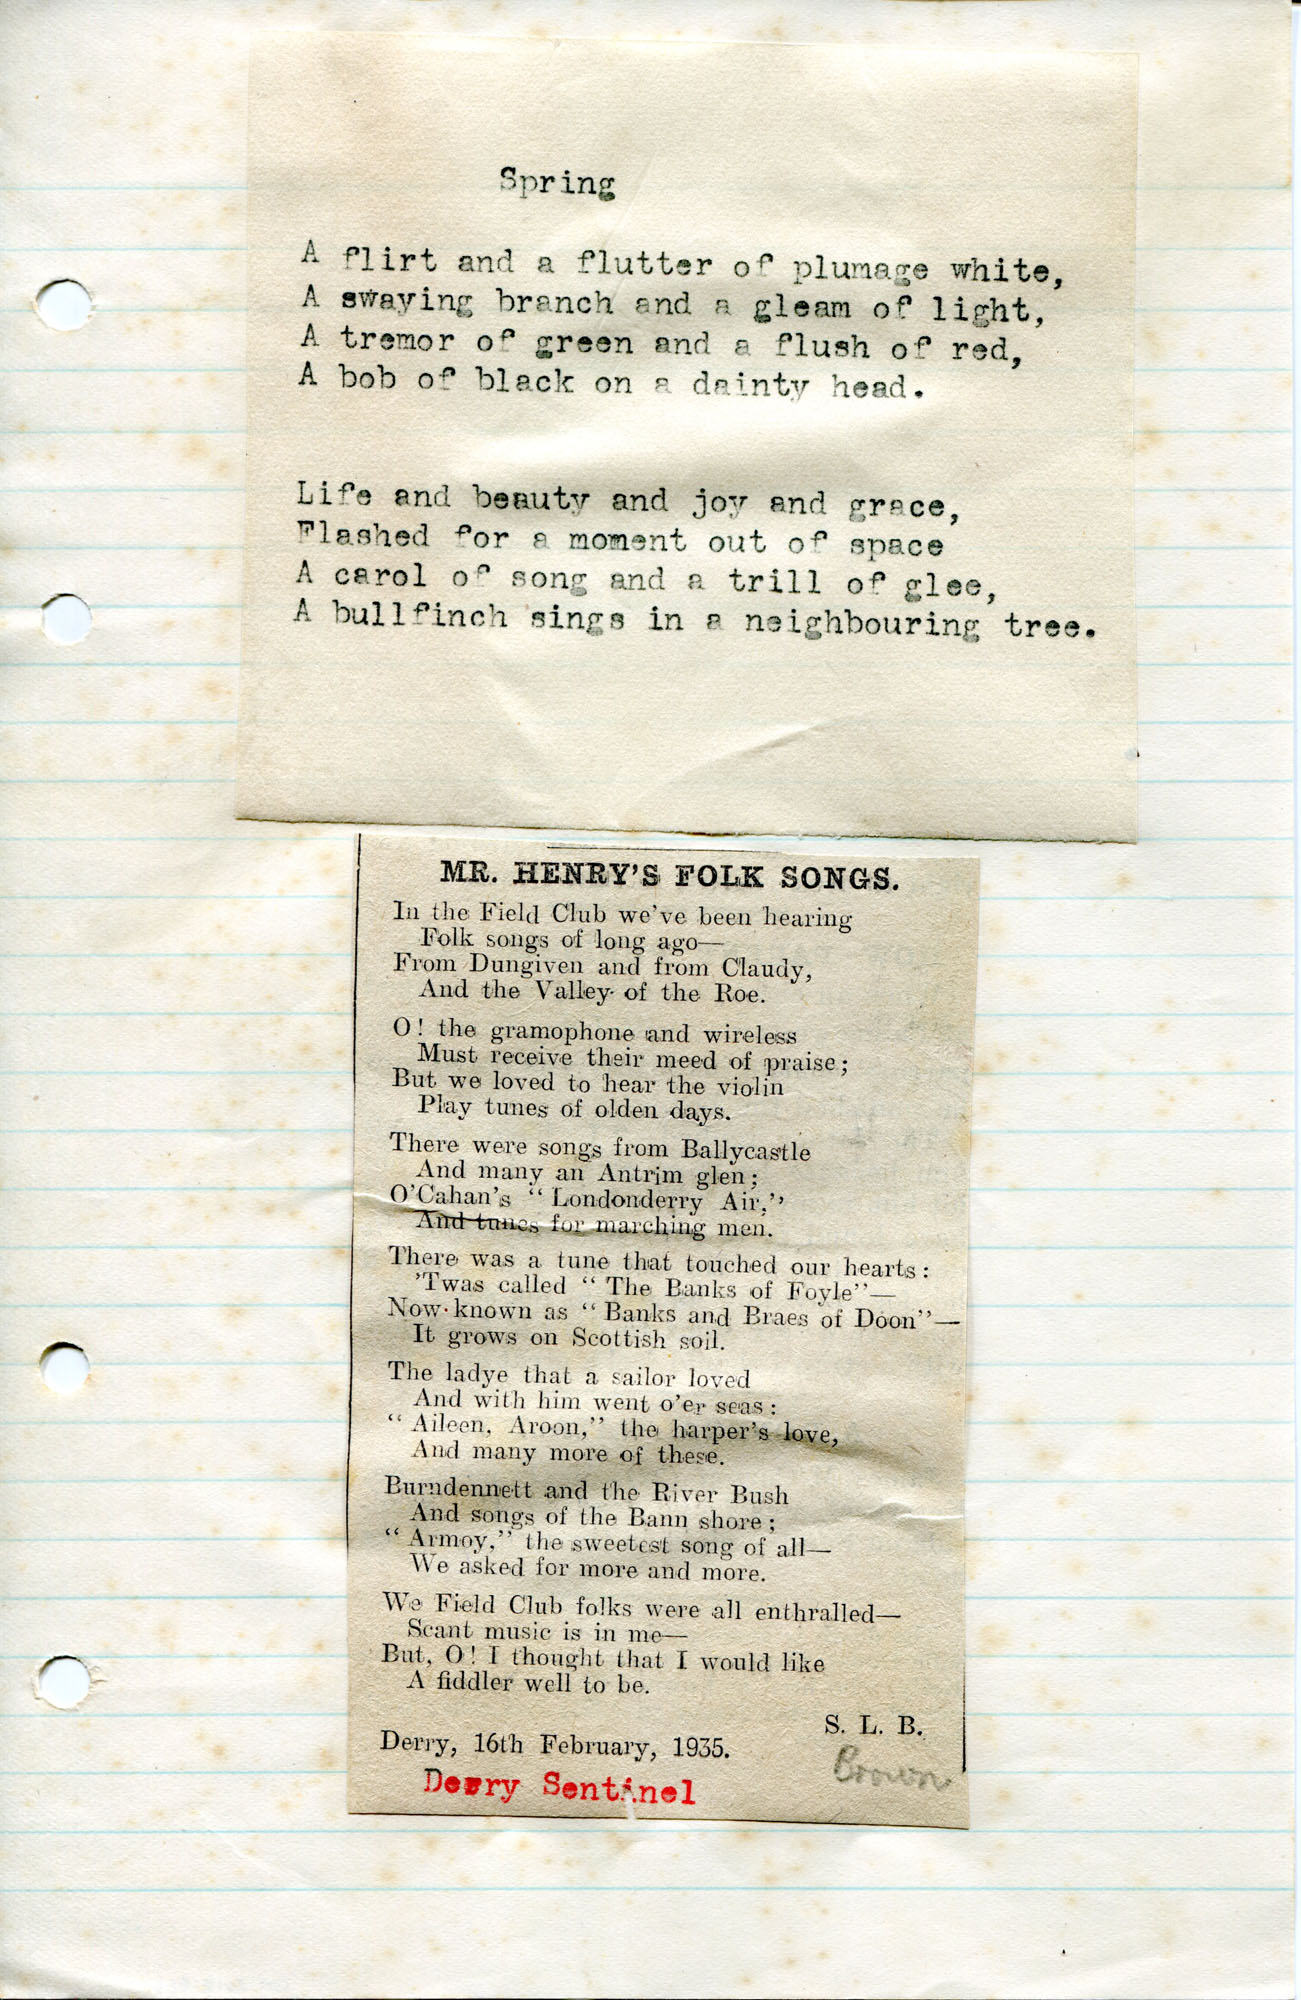 Spring
A flirt and a flutter of plumage white,
A swaying branch and a gleam of light,
A tremor of green and a flush of red,
A bob of black on a dainty head.
Life and beauty and joy and grace,
Flashed for a moment out of space
A carol of song and a trill of glee,
A bullfinch sings in a neighbouring tree.
MR. HENRY'S FOLK SONGS.
In the Field Club we've been hearing
Folk songs of long ago—
From Dungiven and from Claudy,
And the Valley of the Roe.
O! the gramophone and wireless
Must receive their meed of praise;
But we loved to hear the violin
Play tunes of olden days.
There were songs from Ballycastle
And many an Antrim glen;
O'Cahan's "Londonderry Air,"
And tunes for marching men.
There was a tune that touched our hearts:
'Twas called "The Banks of Foyle"—
Now known as "Banks and Braes of Doon"—
It grows on Scottish soil.
The ladye that a sailor loved
And with him went o'er seas:
"Aileen, Aroon," the harper's love,
And many more of these.
Burndennett and the River Bush
And songs of the Bann shore;
"Armoy," the sweetest song of all—
We asked for more and more.
We Field Club folks were all enthralled—
Scant music is in me—
But, O! I thought that I would like
A fiddler well to be.
S. L. B.
Derry, 16th February, 1935.
Brown
Derry Sentinel